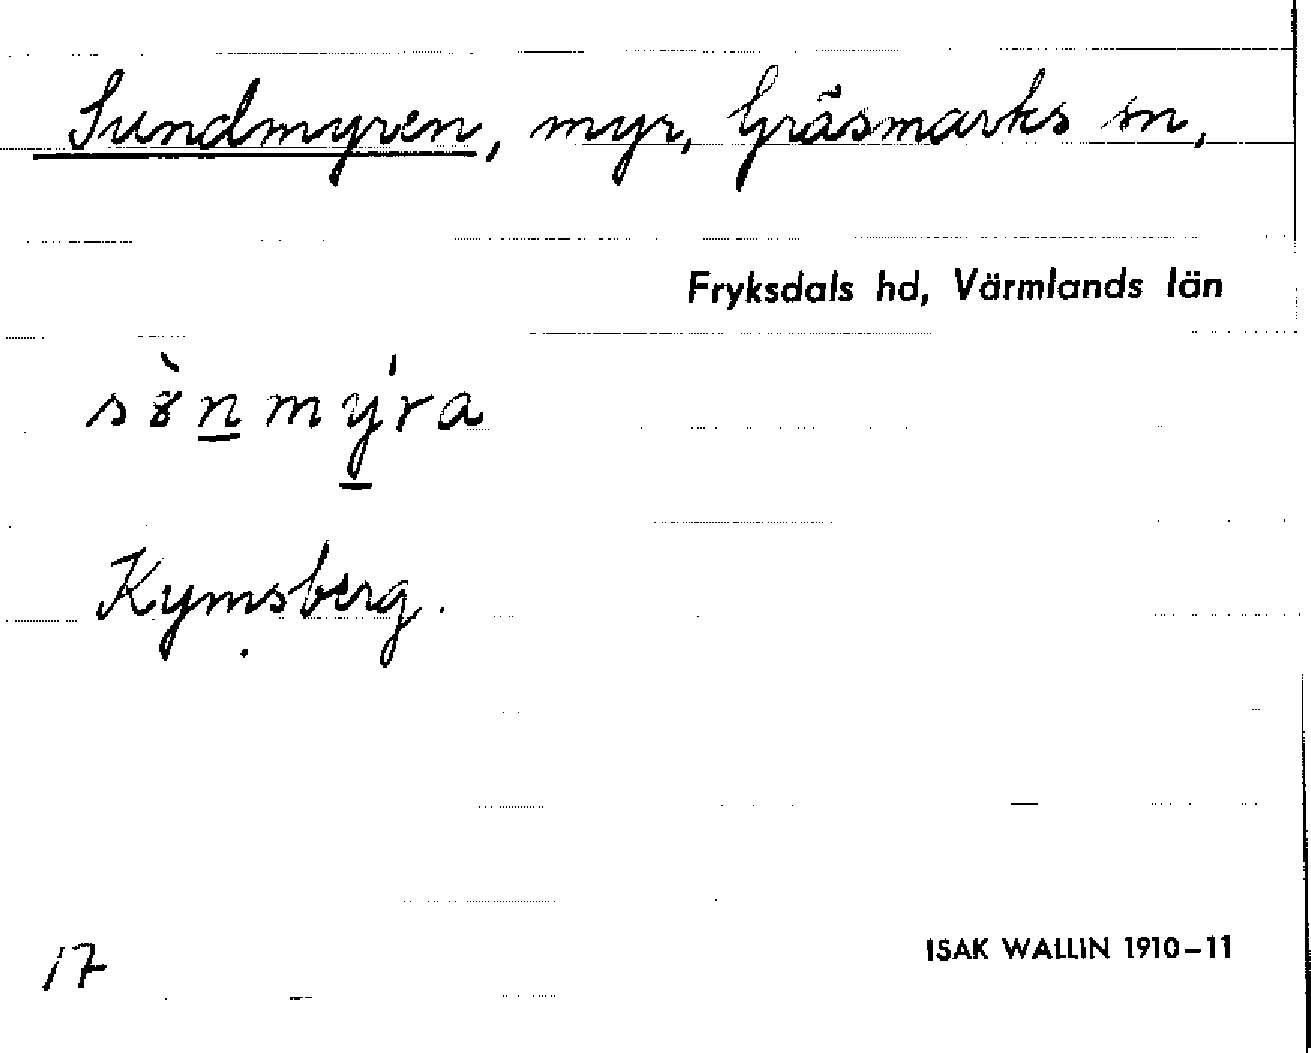 Sundmyren, myr, Gräsmarks sn,
Fryksdals hd, Värmlands län
sȣ̀n̲mý̲ra
Kymsberg.
17
ISAK WALLIN 1910–11